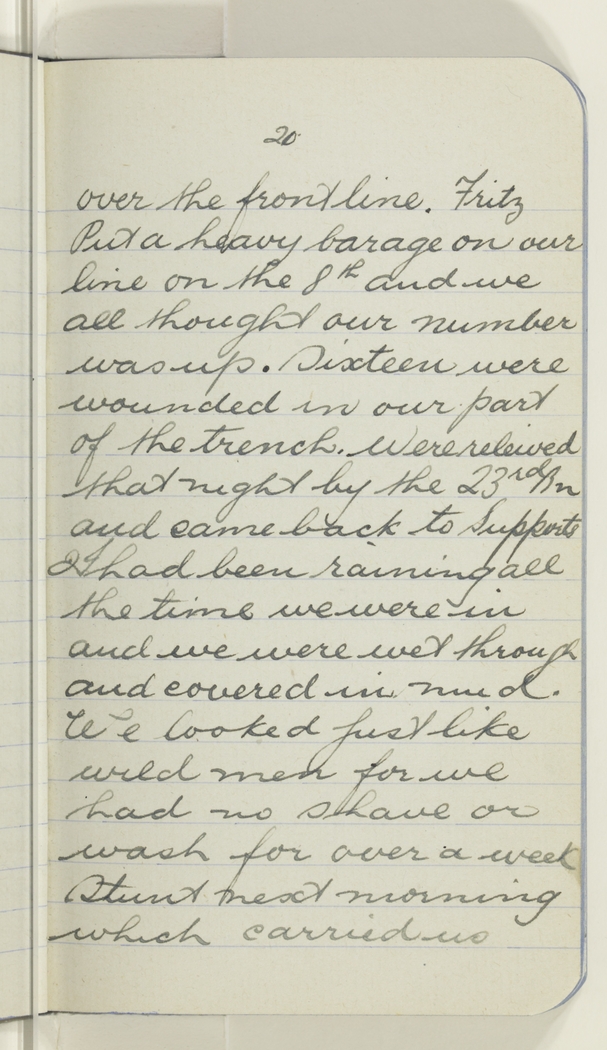 20
over the front line. Fritz
Put a heavy barage on our
line on the 8th and we
all thought our number
was up. Sixteen were
wounded in our part
of the trench. Were releived
that night by the 23rd Bn
and came back to Supports
It had been raining all
the time we were in
and we were wet through
and covered in mud.
We looked just like
wild men for we
had no shave or
wash for over a week
Stunt next morning
which carried us